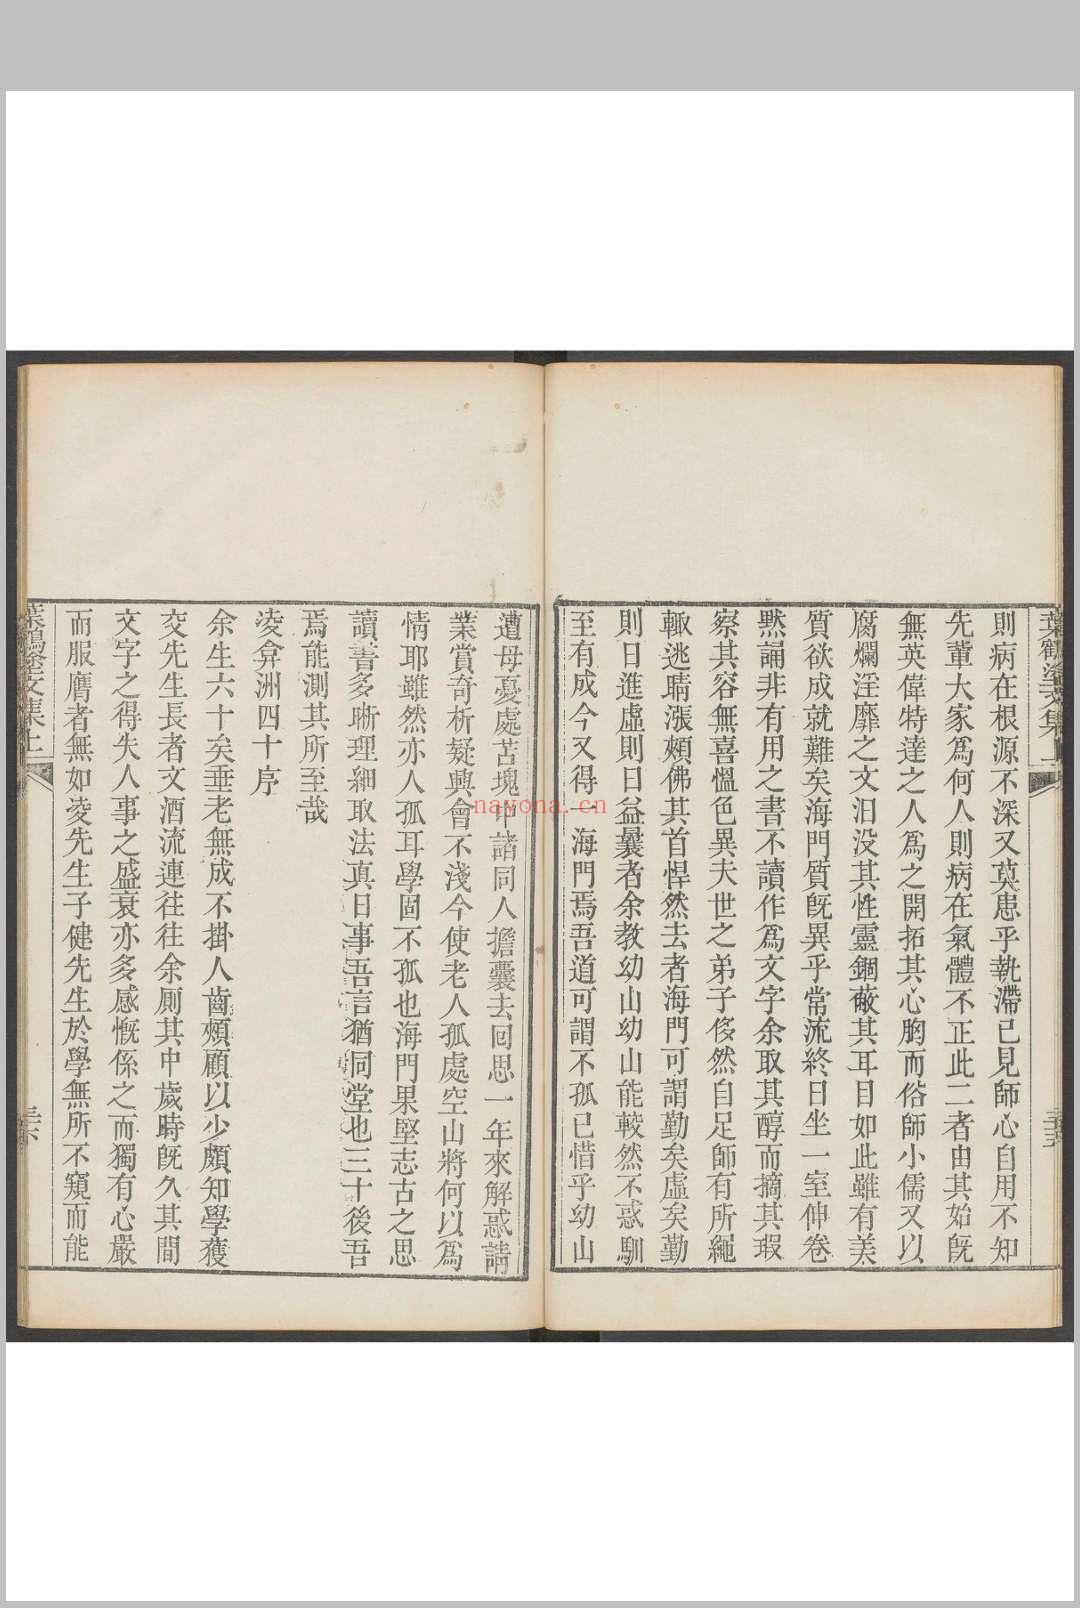 葉鶴塗文集上
則病在根源不深又莫患乎執滯已見師心自用不知
先輩大家爲何人則病在氣體不正此二者由其始旣
無英偉特達之人爲之開拓其心胸而俗師小儒又以
腐爛淫靡之文汨没其性靈錮蔽其耳目如此雖有美
質欲成就難矣海門質旣異乎常流終日坐一室伸卷
黙誦非有用之書不讀作爲文字余取其醇而摘其瑕
察其容無喜慍色異夫世之弟子侈然自足師有所繩
輒逃睛漲頰佛其首悍然去者海門可謂勤矣虛矣勤
則日進虛則日益曩者余教幼山幼山能較然不惑馴
至有成今又得一海門焉吾道可謂不孤已惜乎幼山
遭母憂處苫塊中諸同人擔囊去回思一年來解惑請
業賞奇析疑興會不淺今使老人孤處空山將何以爲
情耶雖然亦人孤耳學固不孤也海門果堅志古之思
讀書多晰理細取法真日事吾言猶同堂也三十後吾
焉能測其所至哉
凌弇洲四十序
余生六十矣垂老無成不掛人齒頰顧以少頗知學獲
交先生長者文酒流連往往余厠其中歲時旣久其間
文字之得失人事之盛衰亦多感慨係之而獨有心嚴
而服膺者無如凌先生子健先生於學無所不窺而能
葉鶴塗文集上
nayona.cn